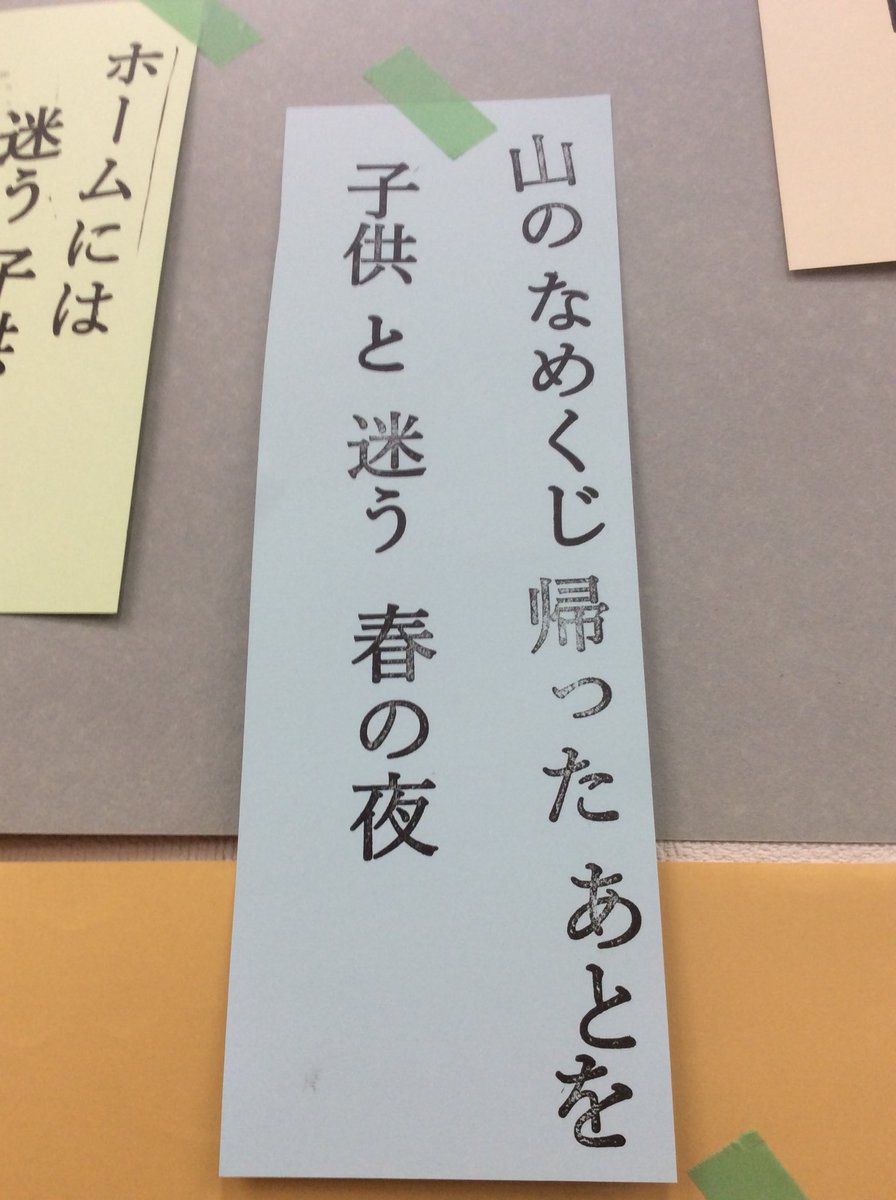 山の なめくじ 帰った あとを
子供 と 迷う 春の夜
ホームには
迷う 子供